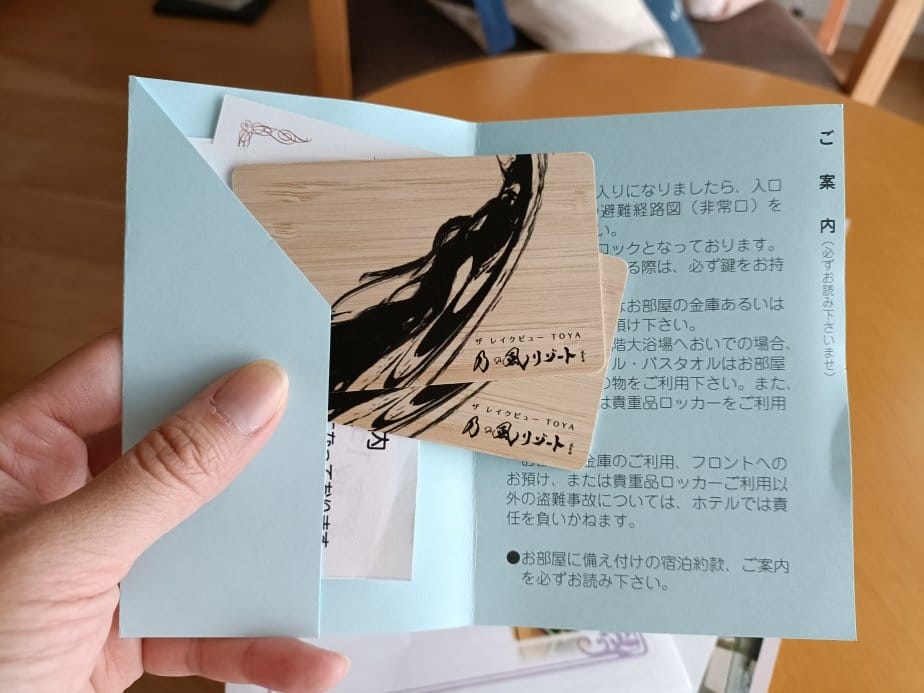 ご案内(必ずお読み下さいませ)
入りになりましたら、入口
避難経路図(非常口)を
い。
ロックとなっております。
る際は、必ず鍵をお持
はお部屋の金庫あるいは
預け下さい。
階大浴場へおいでの場合、
ル・バスタオルはお部屋
の物をご利用下さい。また、
は貴重品ロッカーをご利用
金庫のご利用、フロントへの
お預け、または貴重品ロッカーご利用以
外の盗難事故については、ホテルでは責
任を負いかねます。
●お部屋に備え付けの宿泊約款、ご案内
を必ずお読み下さい。
ザ レイクビュー TOYA
乃の風リゾート
ザ レイクビュー TOYA
乃の風リゾート
内
なっております